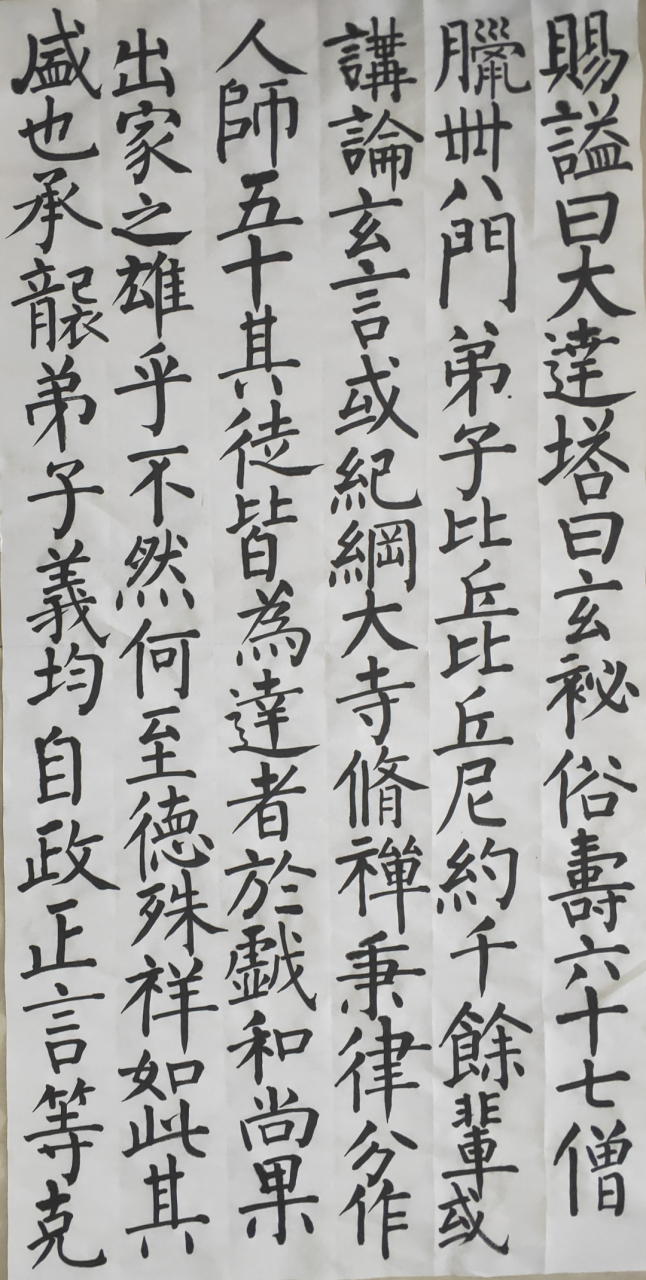 賜謚曰大達塔曰玄祕俗壽六十七僧
臘卅八門弟子比丘比丘尼約千餘輩或
講論玄言或紀綱大寺脩禪秉律分作
人師五十其徒皆為達者於戲和尚果
出家之雄乎不然何至德殊祥如此其
盛也承襲弟子義均自政正言等克